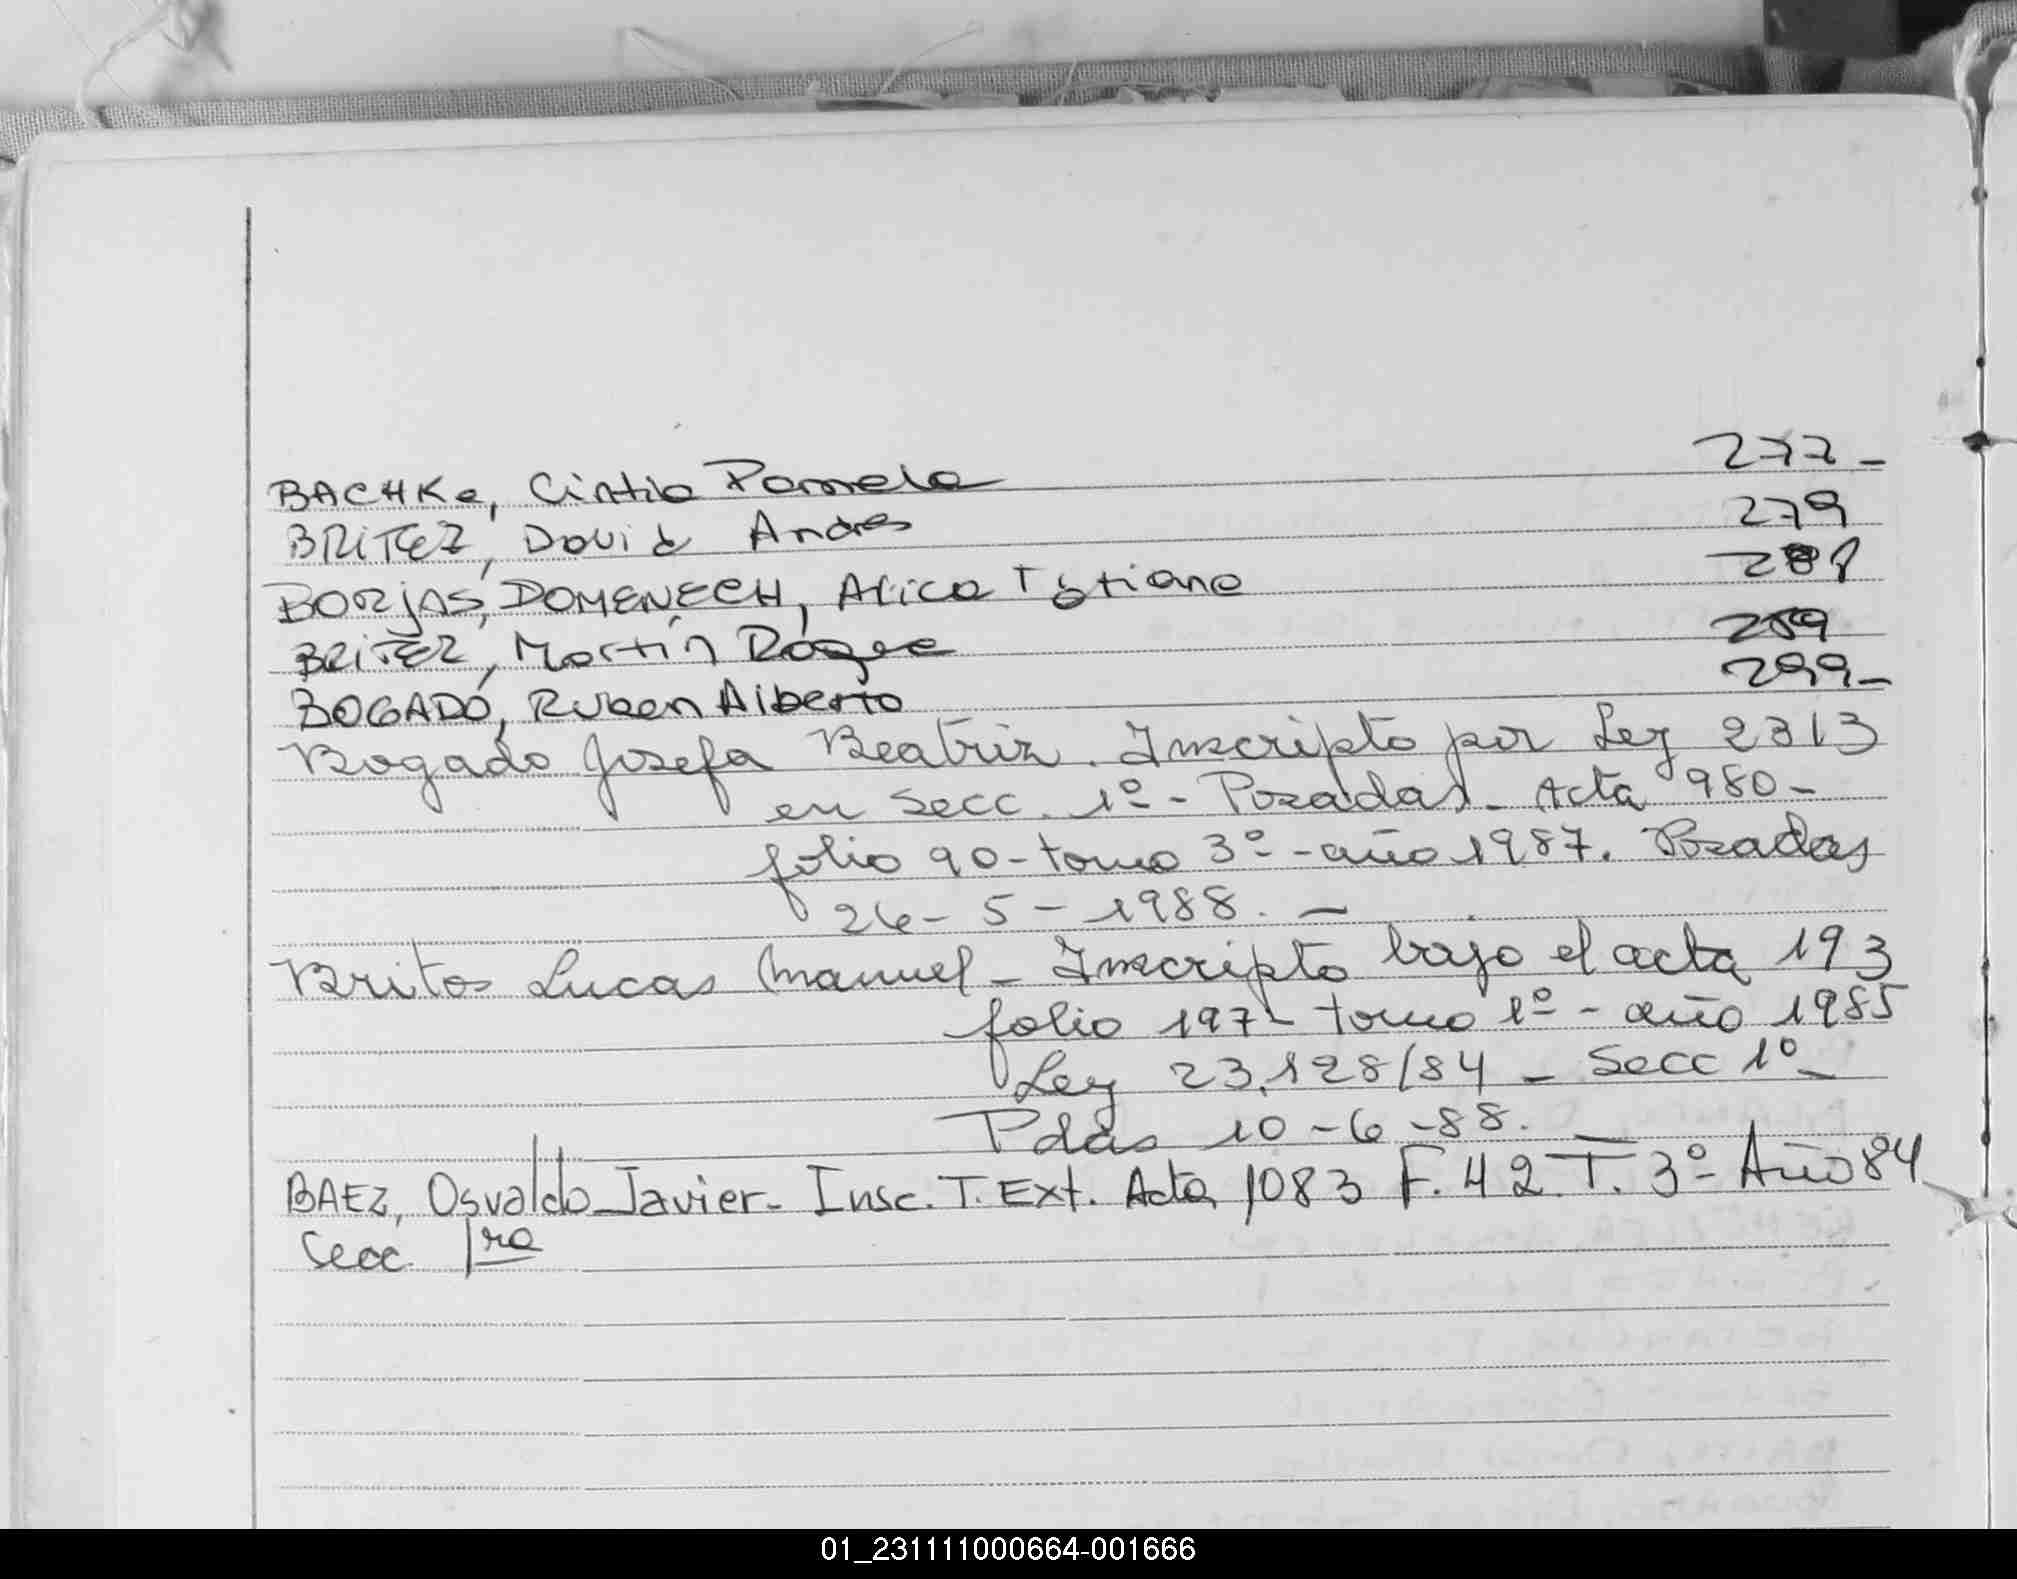 BACHKe, Cintia Pamela 277-
BRITEZ, David Andres 279
BORjAS, DOMENECH, Alica Tatiana
BRITEZ, Martín Roque 289
BOGADO, Ruben Alberto 299-
Bogado Josefa Beatriz. Inscripto por Ley 2313
en Secc. 1º- Posadas- Acta 980-
folio 90-tomo 3º-año 1987. Posadas
26-5-1988. -
Britos Lucas Manuel- Inscripto bajo el acta 193
folio 197- tomo 1º- año 1985
Ley 23.128/84 - Secc 1º-
Pdas 10-6-88.
BAEZ, Osvaldo Javier- Insc. T. Ext. Acta 1083 F. 42 T. 3º- Año 84
Secc. 1ra
01_231111000664-001666